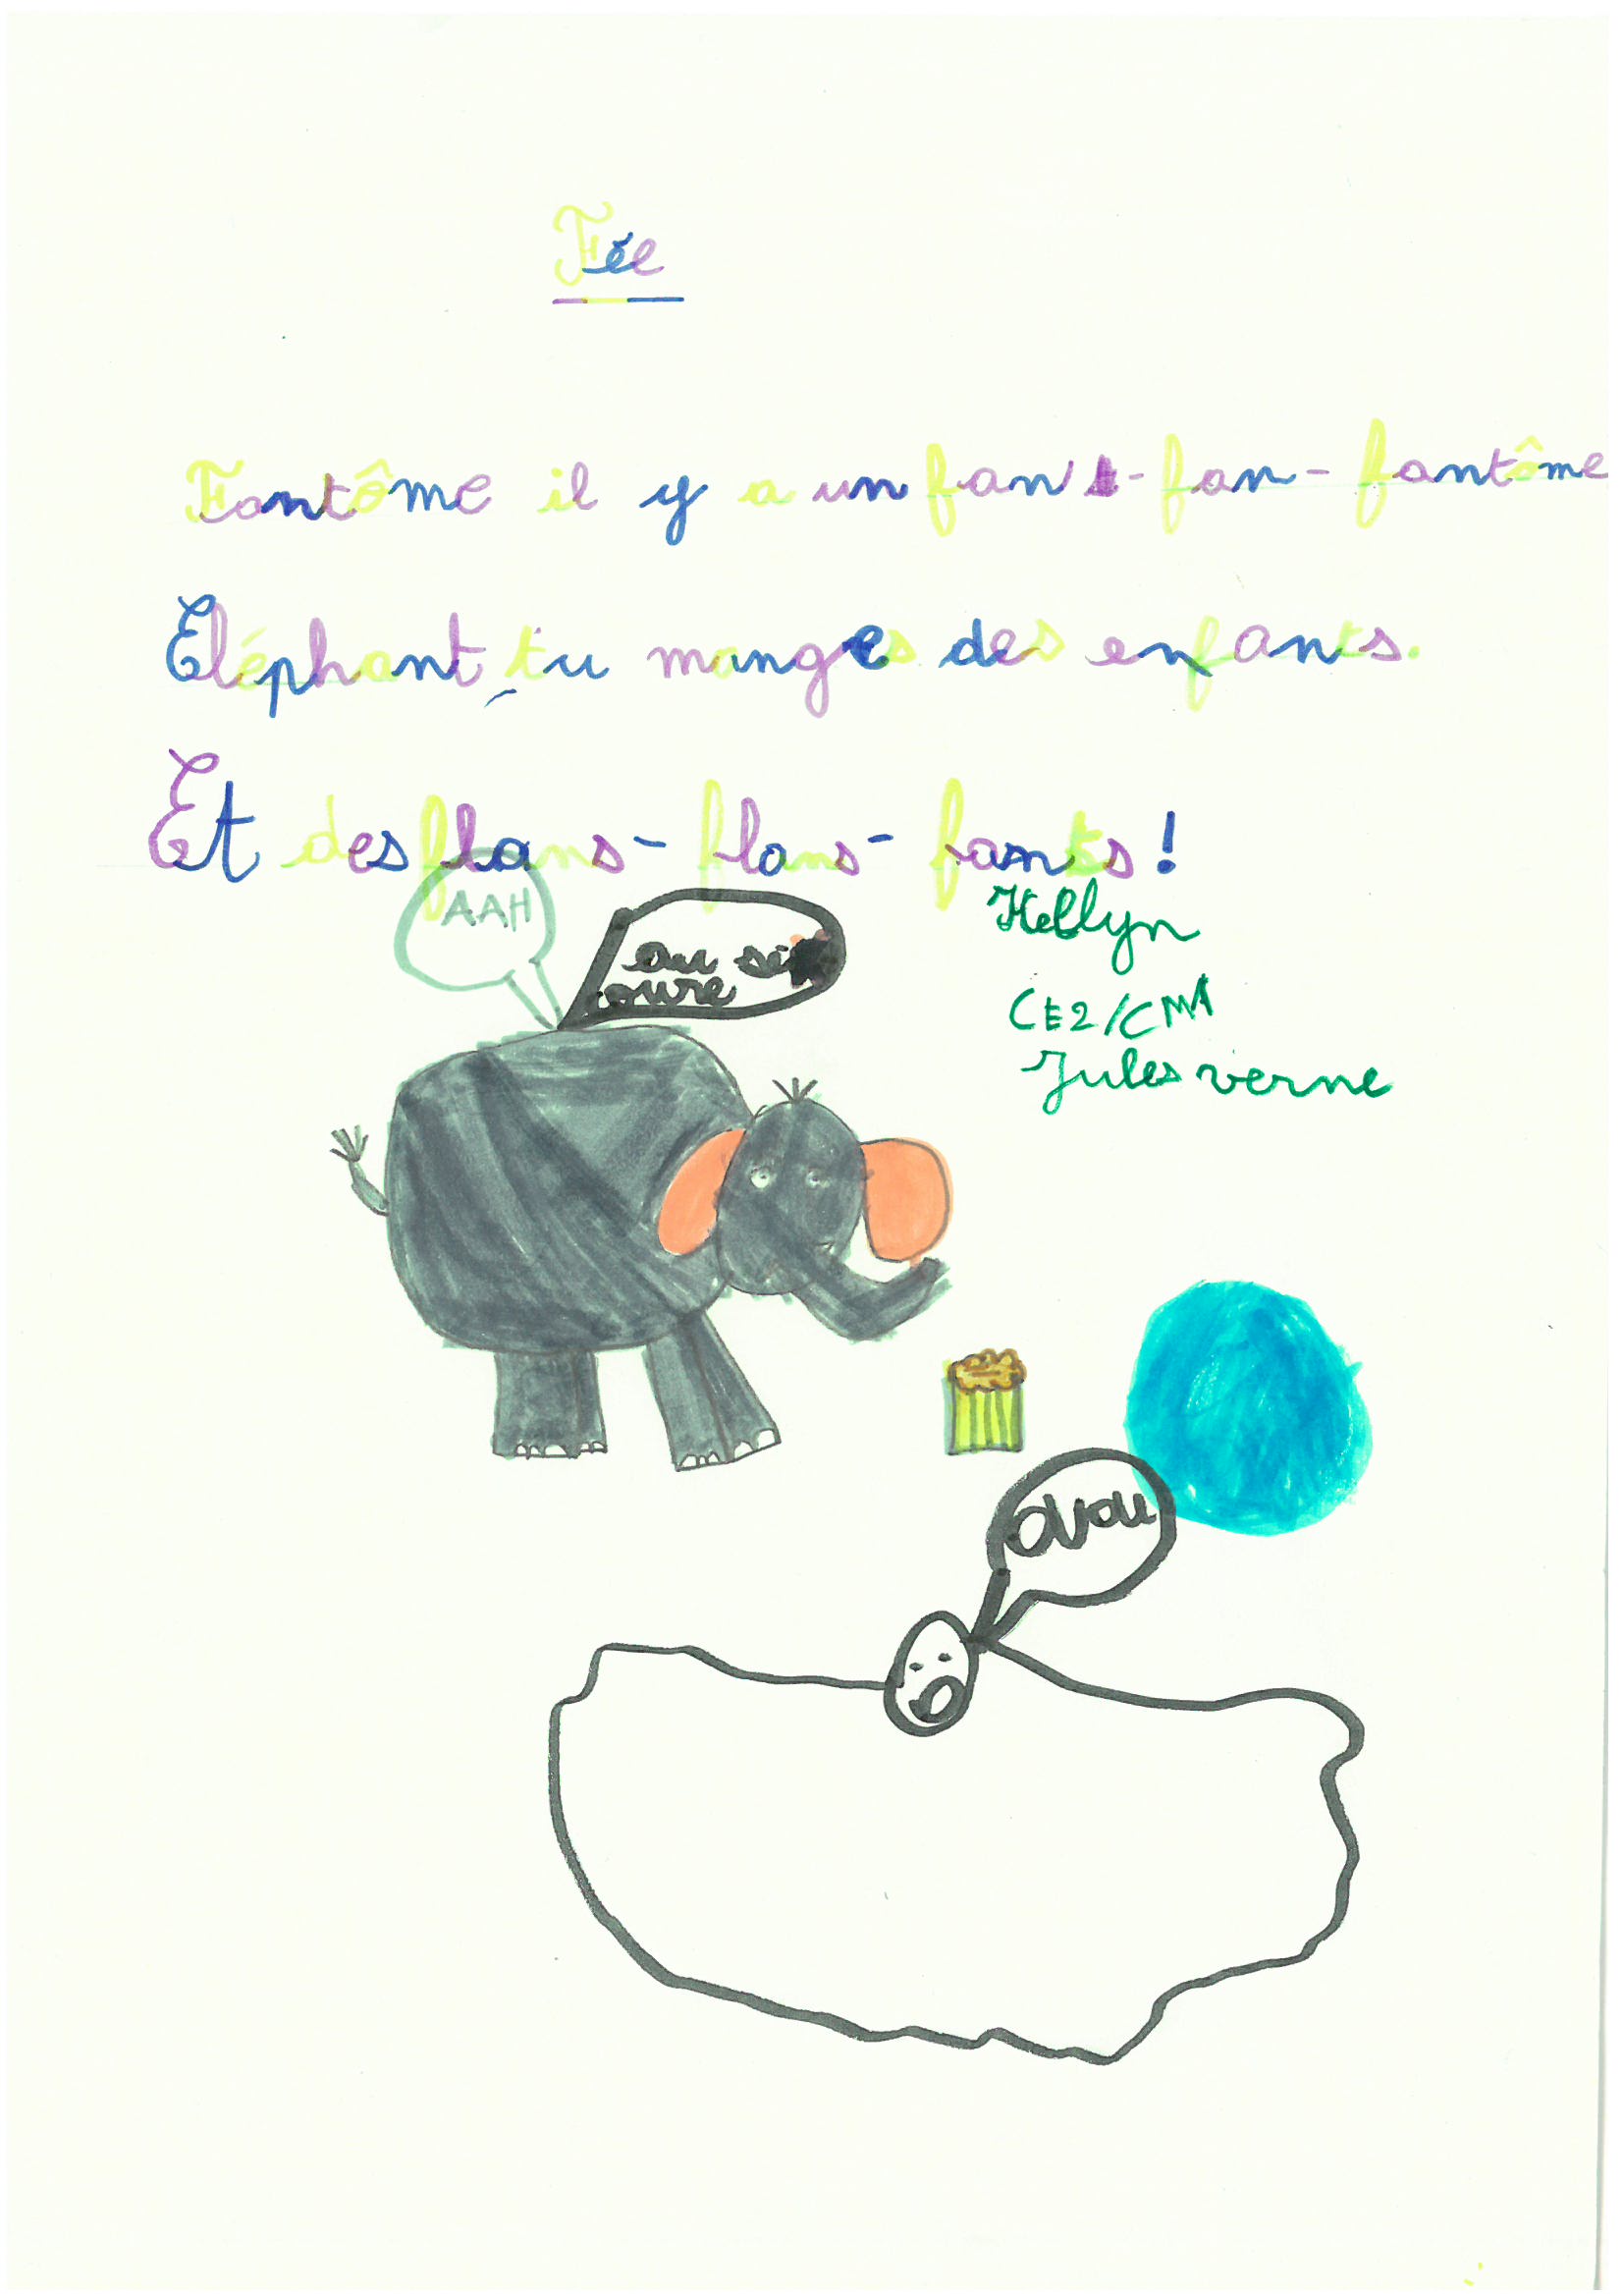 Fée
Fantôme il y a un fan-fan-fantôme
Eléphant, tu manges des enfants.
Et des flans-flans-fants!
AAH
au se
coure
Kellyn
CE2/CM1
Jules verne
OUOU